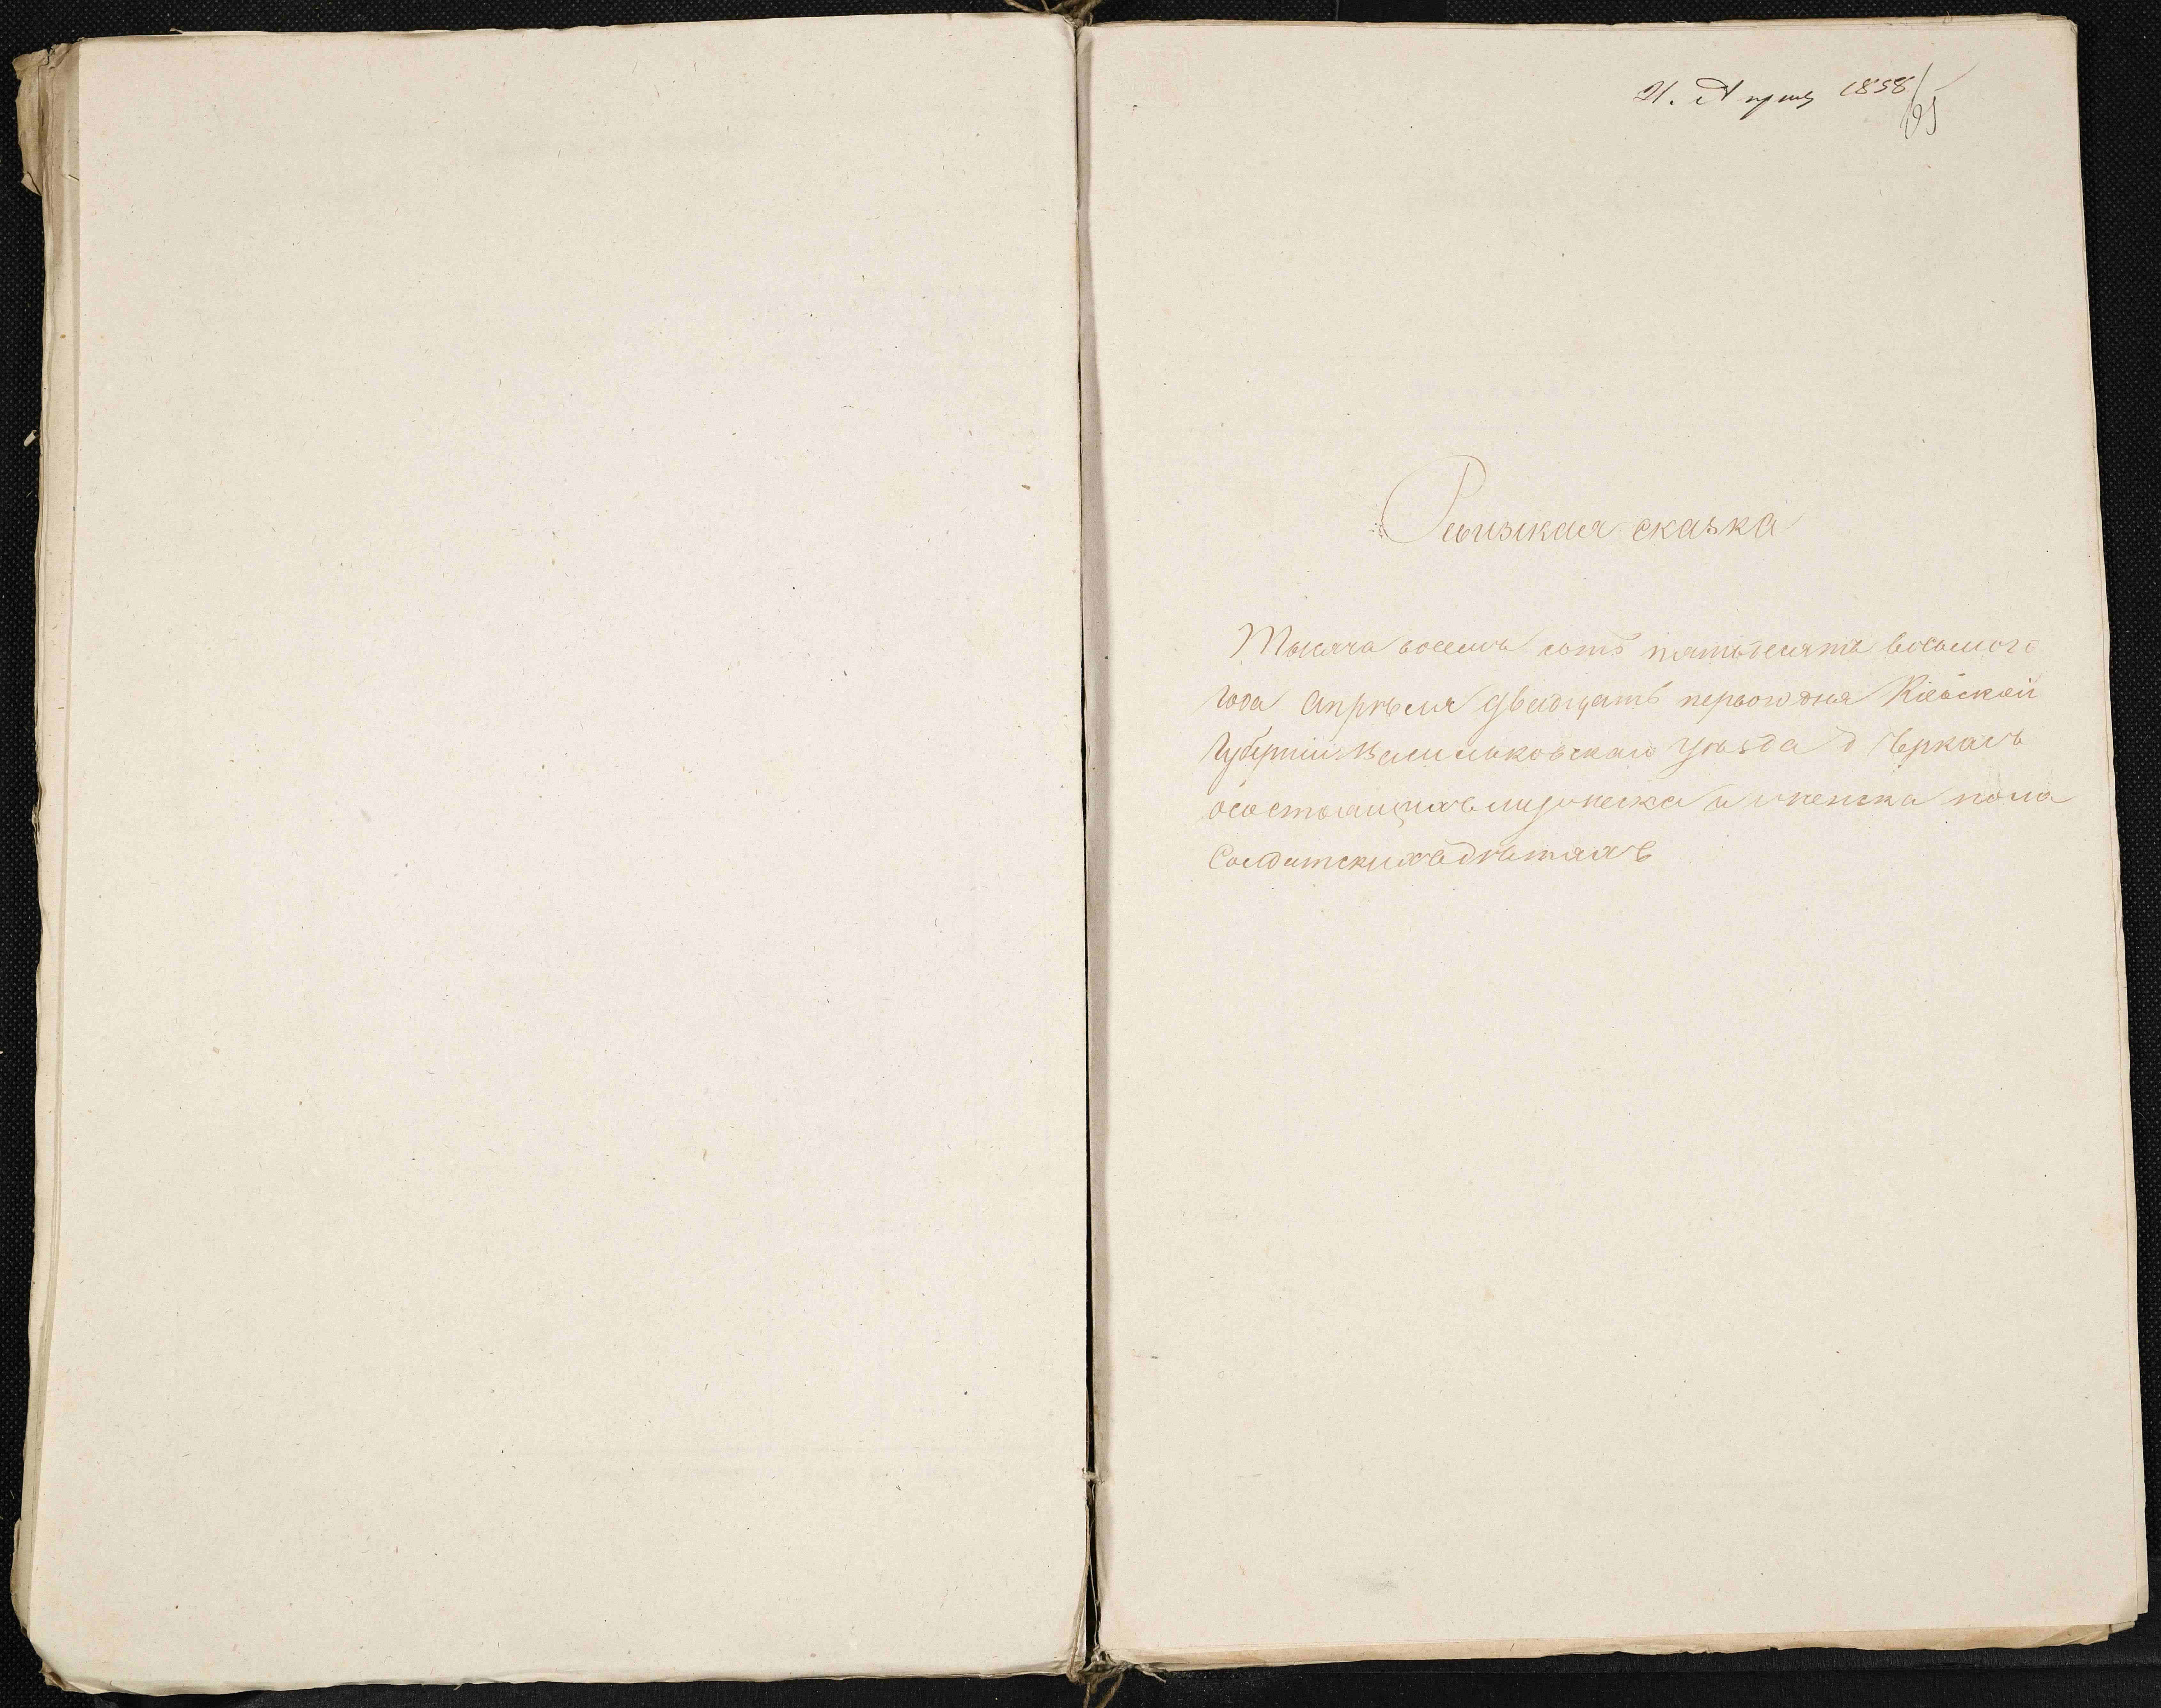 21. Апрѣ 1858
Ревизкая сказка
Тысяча восемь сотъ пятьдесятъ восьмого
года Апрѣля двадцать первого дня Кіевской
Губерніи Васильковскаго уѣзда д Черкасъ
осостоящихъ мужеска и женска пола
Солдатскихъ дѣтяхъ